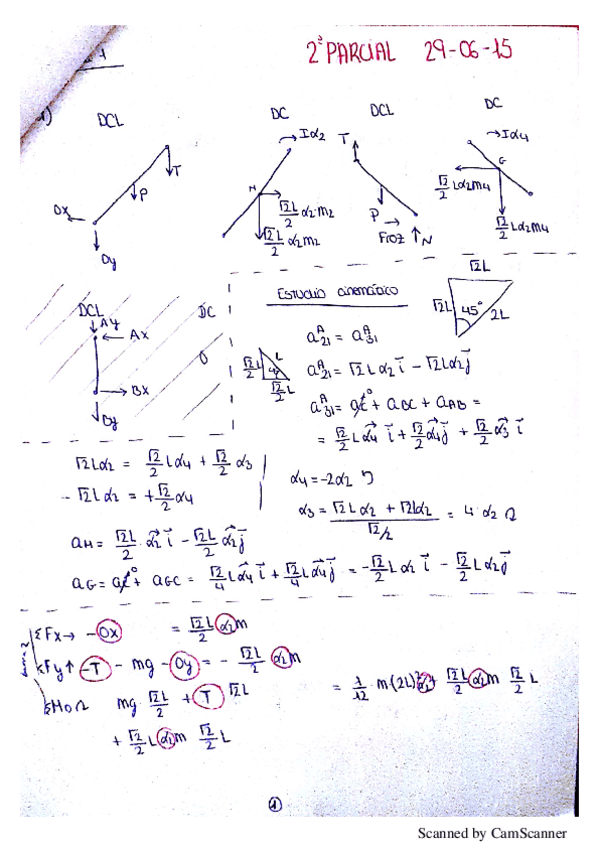 2º PARCIAL 29-06-15
1
DCL DC DCL DC
Iα2 T Iα4
T P OX Oy
H √2L/2 α2 m2
√2L/2 α2 m2
P FROZ N
G √2/2 Lα2m4
√2/2 Lα2m4
DCL DC
Ay Ax
0
Bx
By
ESTUDIO cinemático
√2L √2L 45° 2L
a^A_21 = a^A_31
√2/2 L L √2L/2
a^A_21 = √2L α2 i⃗ - √2Lα2 j⃗
a^A_31 = + aBC + aAB =
= √2/2 Lα4 i⃗ + √2/2 α4 j⃗ + √2/2 α3 i⃗
√2Lα2 = √2/2 Lα4 + √2/2 α3
- √2L α2 = + √2/2 α4
α4 = -2α2
α3 = (√2L α2 + √2Lα2) / (√2/2) = 4 α2
aH = √2L/2 α2 i⃗ - √2L/2 α2 j⃗
aG = + aGC = √2/4 Lα4 i⃗ + √2/4 Lα4 j⃗ = -√2/2 Lα2 i⃗ - √2/2 Lα2 j⃗
ΣFx → -Ox = √2L/2 α2 m
ΣFy ↑ -T - mg - Oy = - √2L/2 α2 m
ΣMO mg √2L/2 + T √2L = 1/12 m(2L)² α2 + √2L/2 α2 m √2/2 L
+ √2/2 L α2 m √2/2 L
1
Scanned by CamScanner